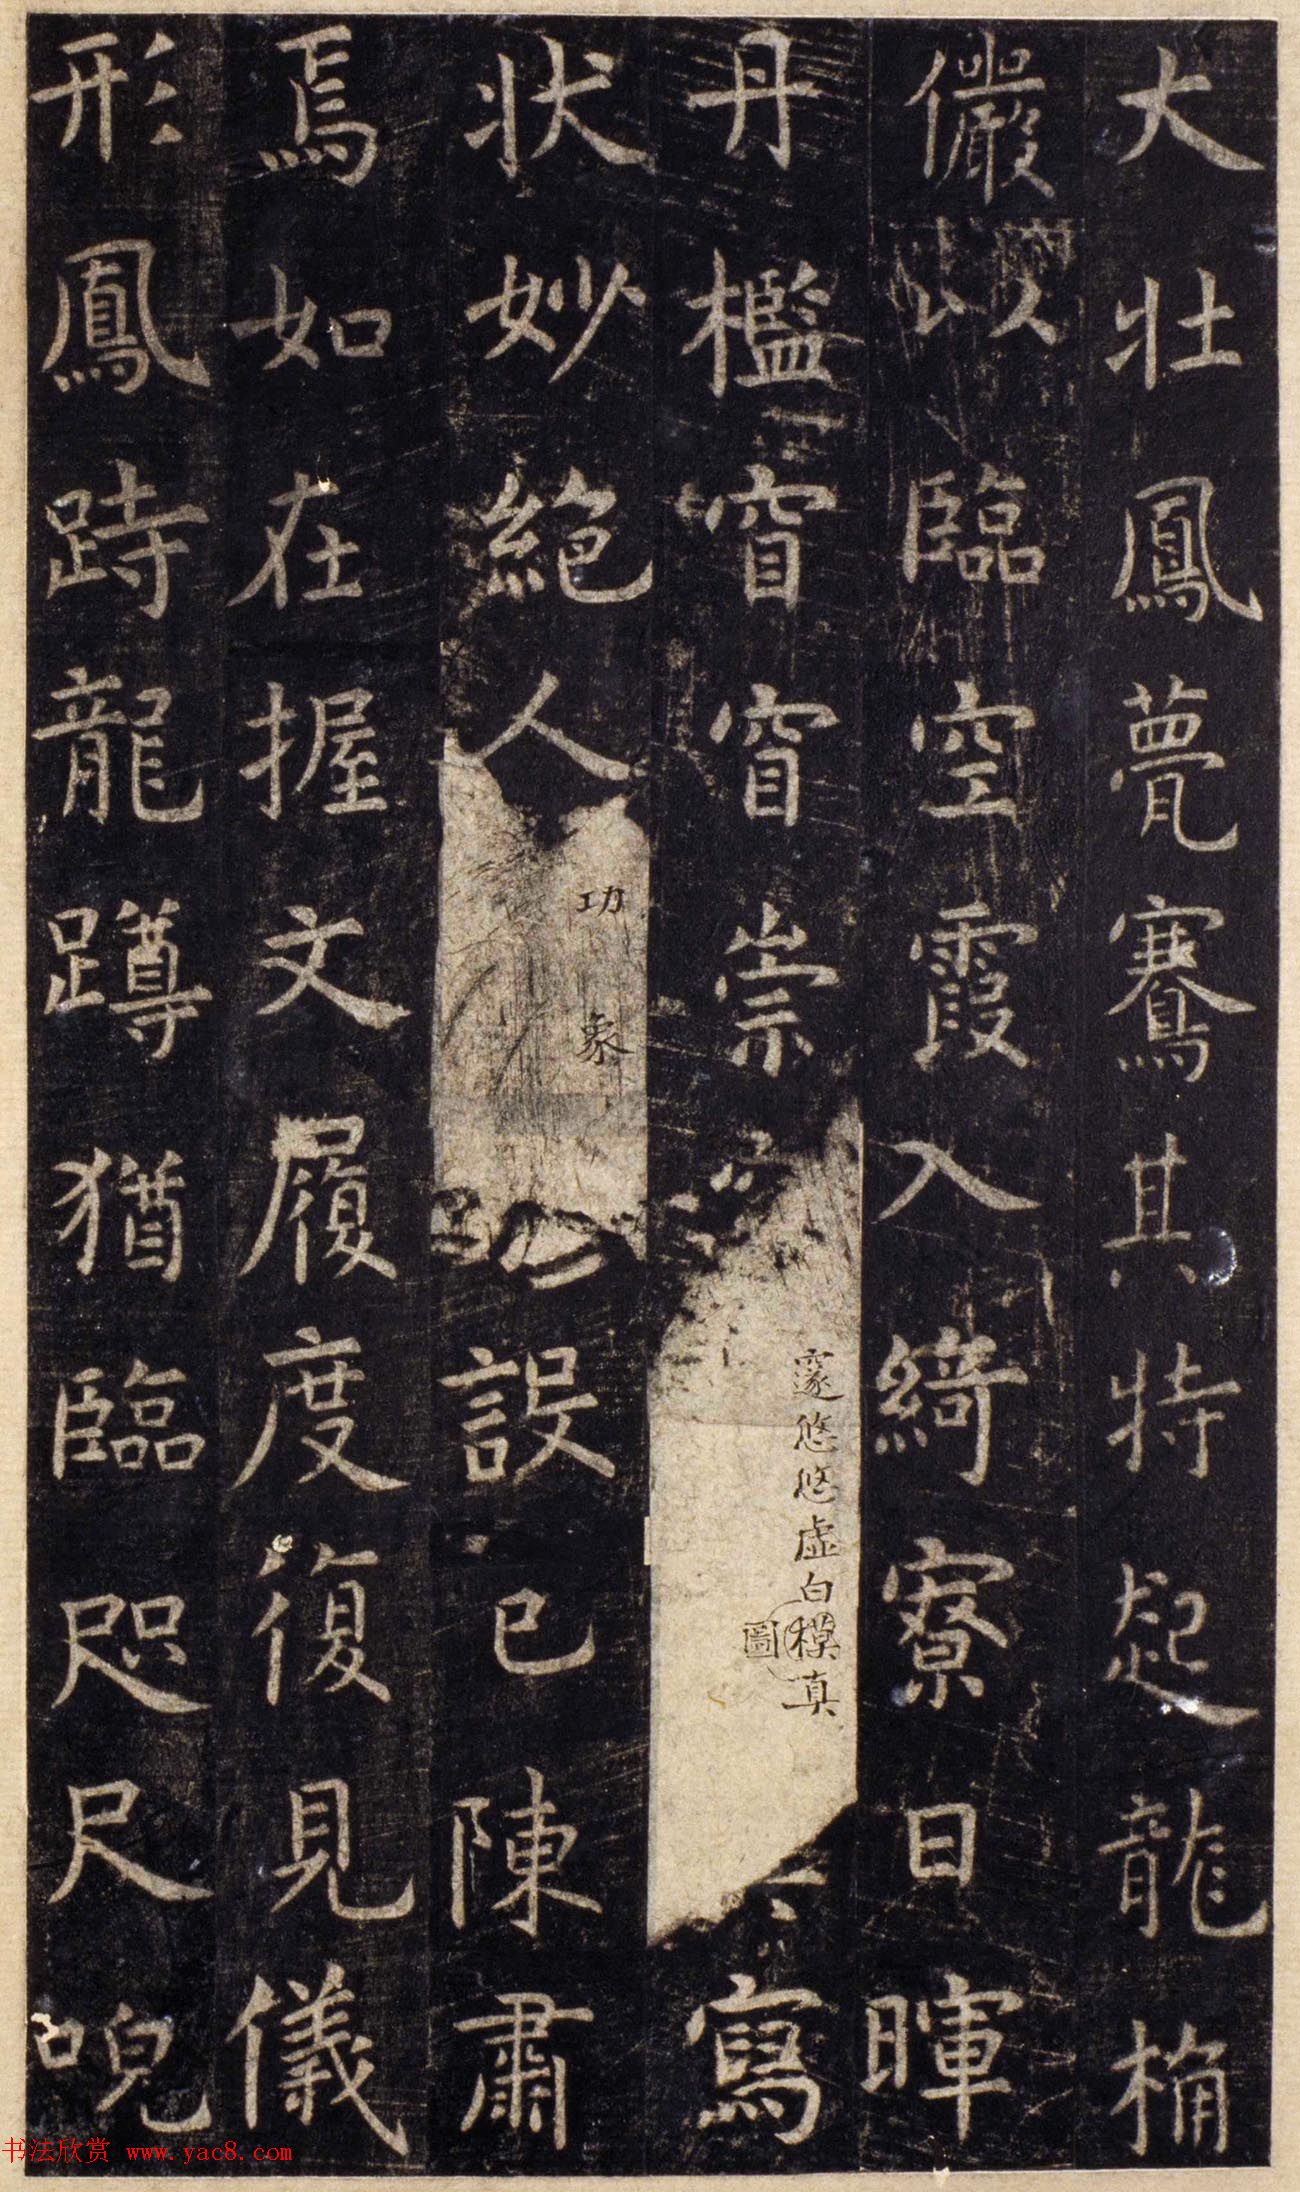 大壯鳳甍騫其特起龍桷
儼以臨空霞入綺寮日暉
丹檻窅窅崇邃悠悠虛白模真寫
圖
狀妙絕人功象設已陳肅
焉如在握文履度復見儀
形鳳跱龍蹲猶臨咫尺唲
书法欣赏 www.yac8.com